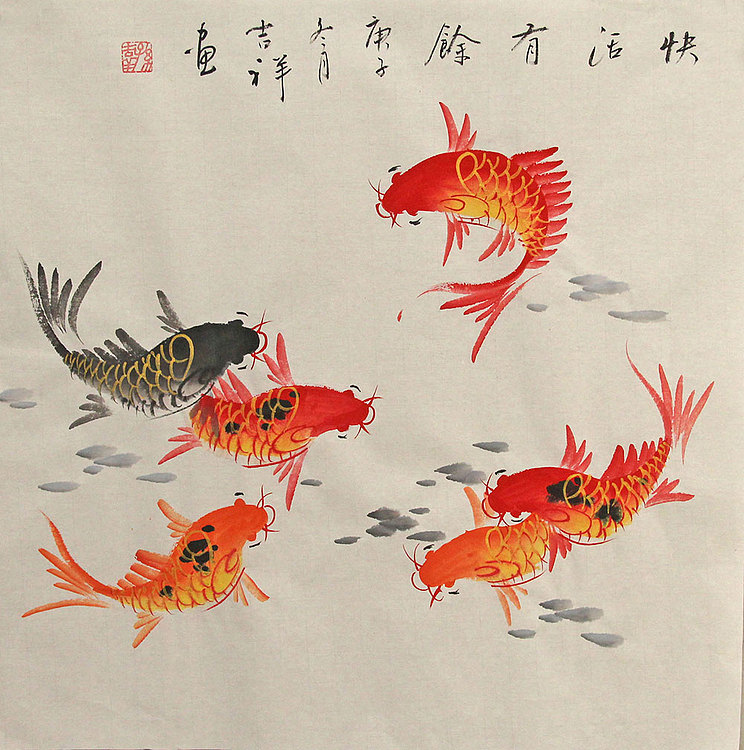 快活有餘
庚子
冬月
吉祥
画